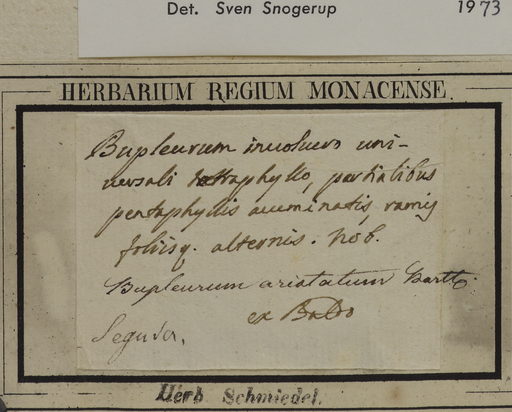 Det. Sven Snogerup 1973
HERBARIUM REGIUM MONACENSE.
Bupleurum involucro uni-
versali tetraphyllo, partialibus
pentaphyllis acuminatis, ramis
foliisq. alternis. Nob.
Bupleurum aristatum Bartl.
ex Baldo
Seguier.
Herb. Schmiedel.